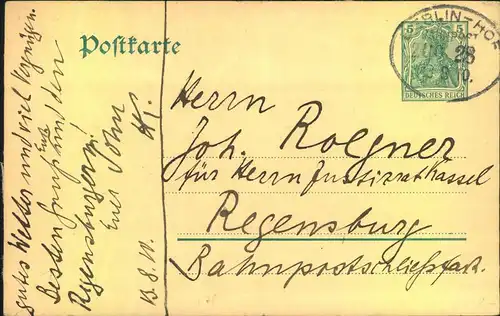 Postkarte
BERLIN-HOF
28
5 5
DEUTSCHES REICH
Herrn
Joh. Roegner
für Herrn Justizrat Hassel
Regensburg
Bahnpostschließfach.
gutes Wetter und viel Vergnügen.
Besten Gruß und den
Regensburgern!
Euer Sohn
13.8.10.